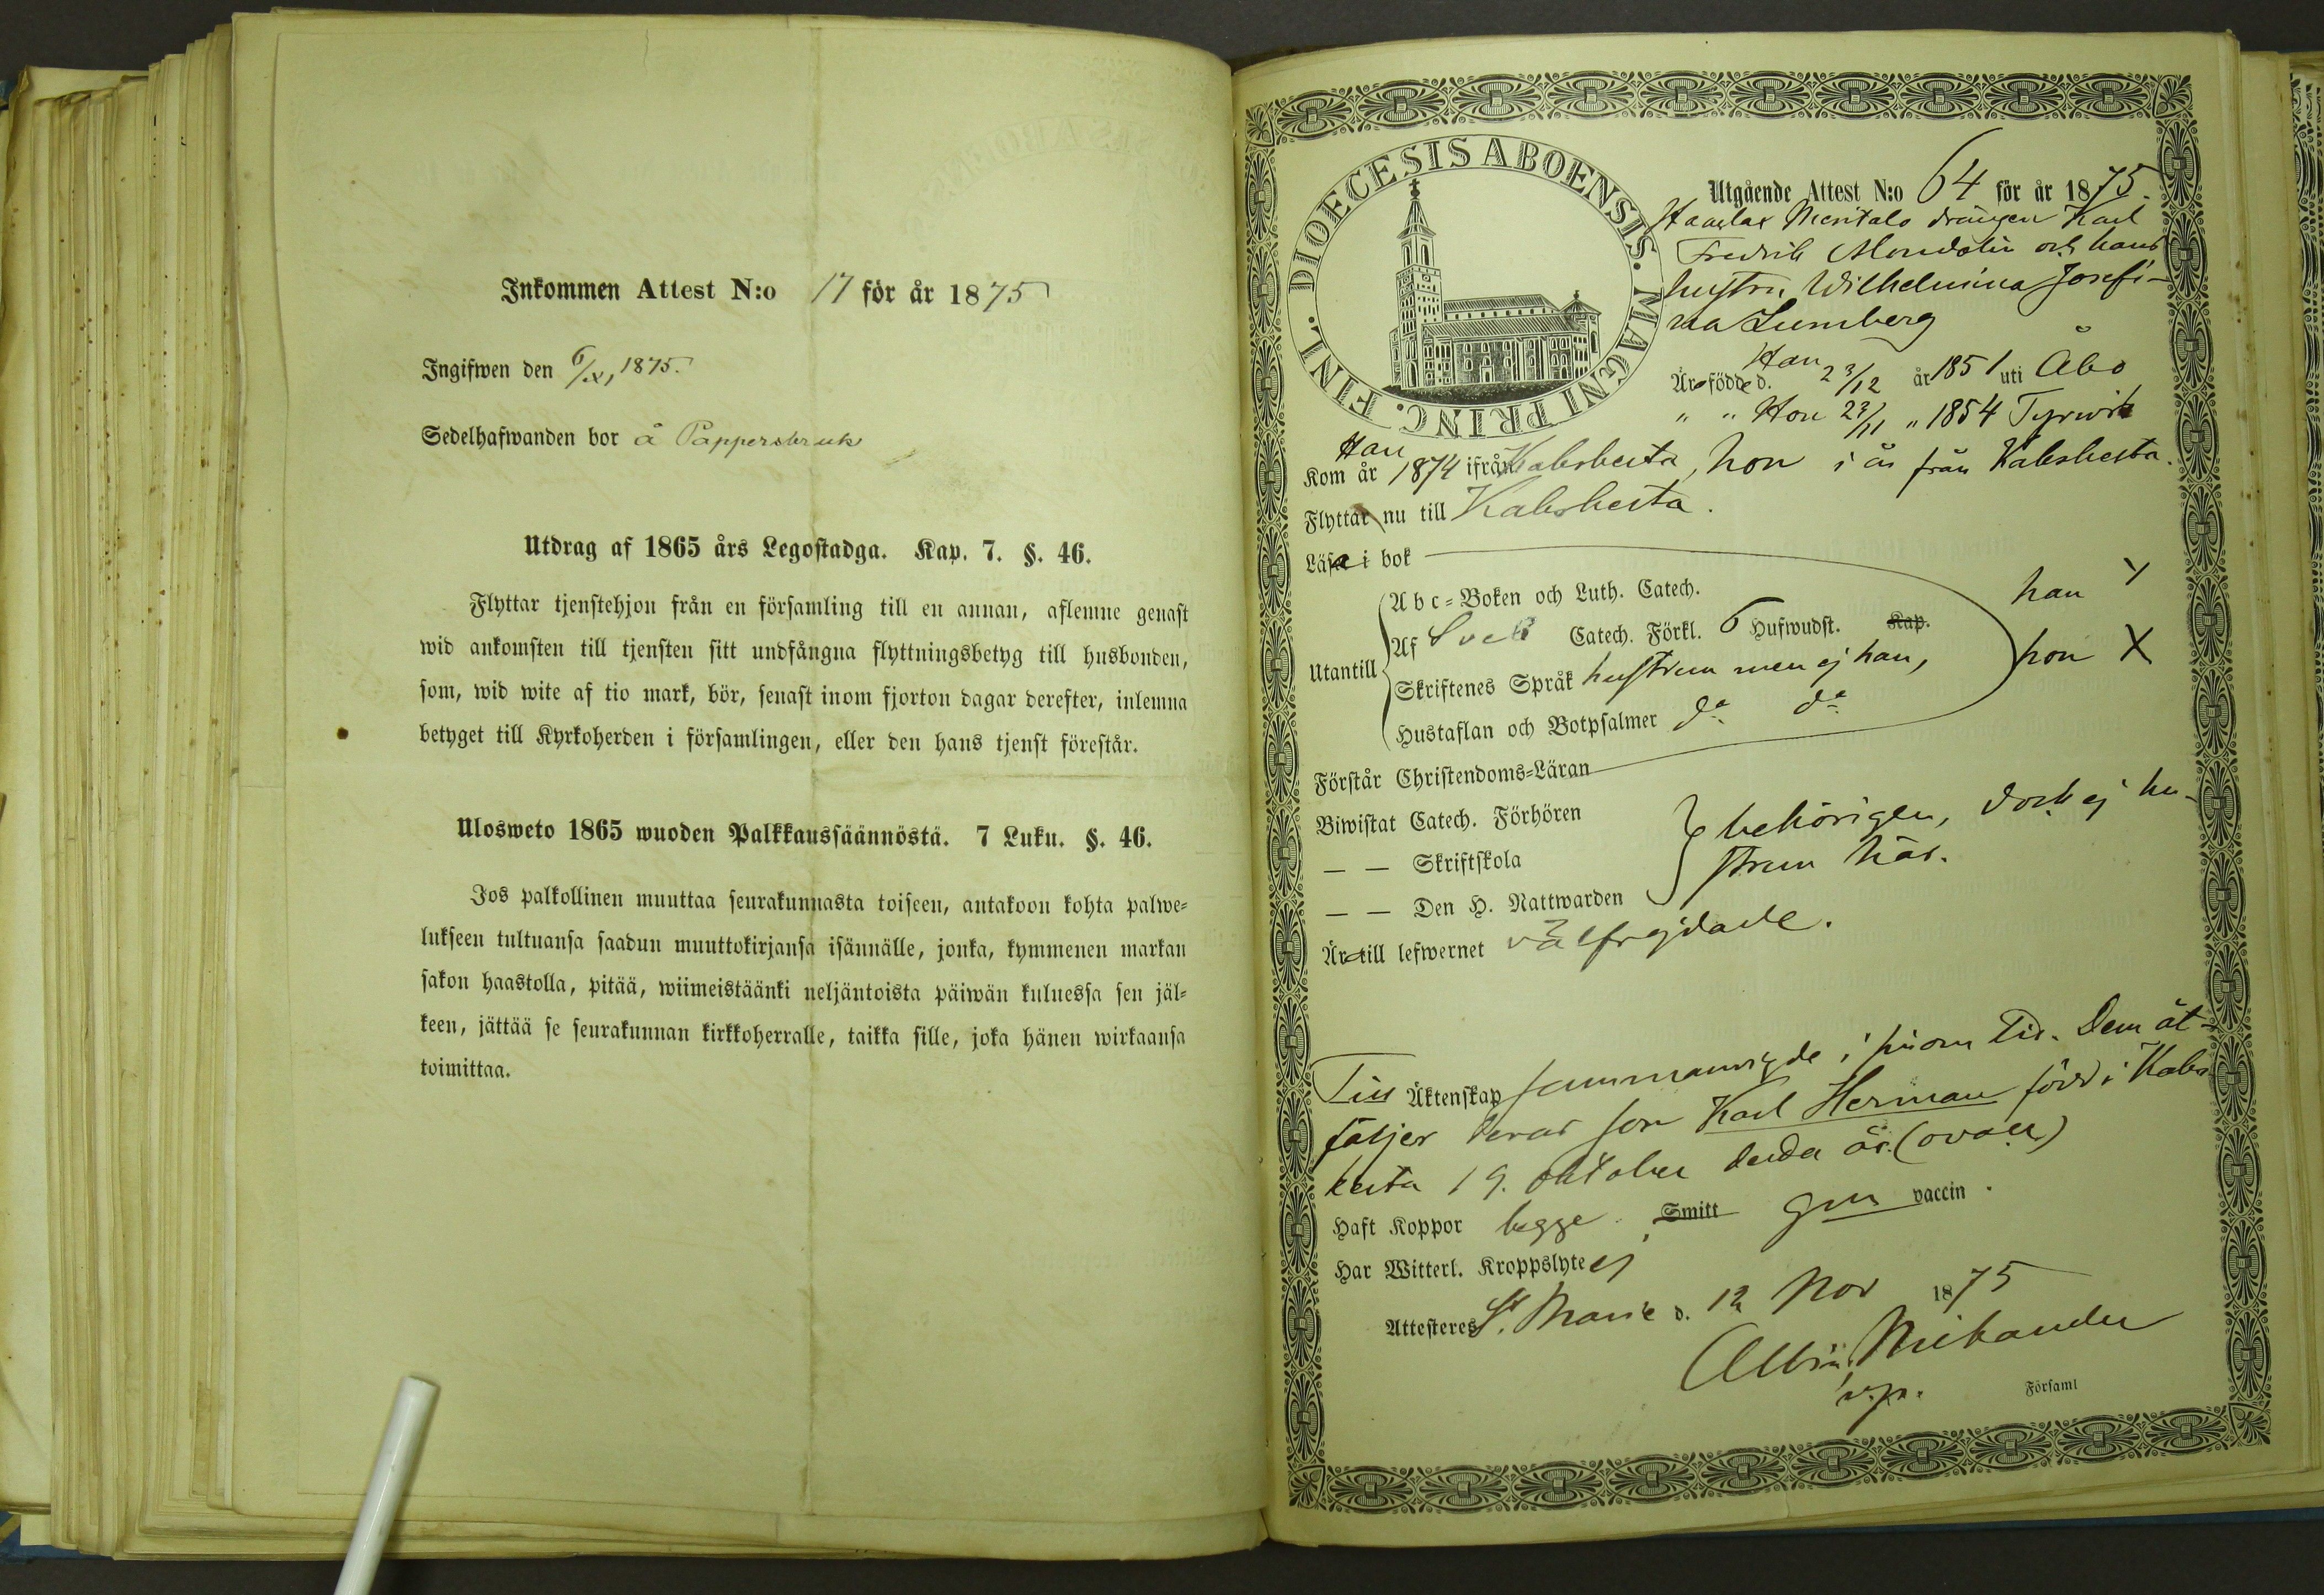 Inkommen Attest N:o 17 för år 1875
Ingifwen den 6/XI 1875.
Sedelhafwanden bor å Pappersbruk
Utdrag af 1865 års Legostadga. Kap. 7. §. 46.
Flyttar tjenstehjon från en församling till en annan, aflemne genast
wid ankomsten till tjensten sitt undfångna flyttningsbetyg till husbonden,
som, wid wite af tio mark, bör, senast inom fjorton dagar derefter, inlemna
betyget till Kyrkoherden i församlingen, eller den hans tjenst förestår.
Ulosweto 1865 wuoden Palkkaussäännöstä. 7 Luku. §. 46.
Jos palkollinen muuttaa seurakunnasta toiseen, antakoon kohta palwe=
lukseen tultuansa saadun muuttokirjansa isännälle, jonka, kymmenen markan
sakon haastolla, pitää, wiimeistäänki neljäntoista päiwän kuluessa sen jäl=
keen, jättää se seurakunnan kirkkoherralle, taikka sille, joka hänen wirkaansa
toimittaa.
DIOECESIS ABOENSIS. MAGNI PRINC. FINL.
Utgående Attest N:o 64 för år 1875.
drängen Karl
Fredrik och hans
hustru Wilhelmina Josefi-
na Lumberg
Han
Är födde d. 23/12 år 1851 uti Åbo
" " Hon 23/11 " 1854 Tyrwis
Han
Kom år 1874 ifrån Kakskerta, hon i år från Kakskerta.
Flyttar nu till Kakskerta.
Läsa i bok
Abc=Boken och Luth. Catech. han
Utantill Af Sveb Catech. Förkl. 6 Hufwudst. Kap.
Skriftenes Språk hustrun men ej han, hon X
Hustaflan och Botpsalmer do do
Förstår Christendoms=Läran
Biwistat Catech. Förhören
behörigen, dock ej hu-
— — Skriftskola
strun här.
— — Den H. Nattwarden
Är till lefwernet välfrejdade.
Till Äktenskap sammanvigde i sinom tid. Dem åt-
följer deras son Karl Herman född i Kaks
kerta 19. oktober detta år. (ovacc)
Haft Koppor begge. Smitt gm vaccin.
Har Witterl. Kroppslyte ej
Attesteres St. Marie d. 12 Nov 1875
Albin Nikander
v.p. Församl